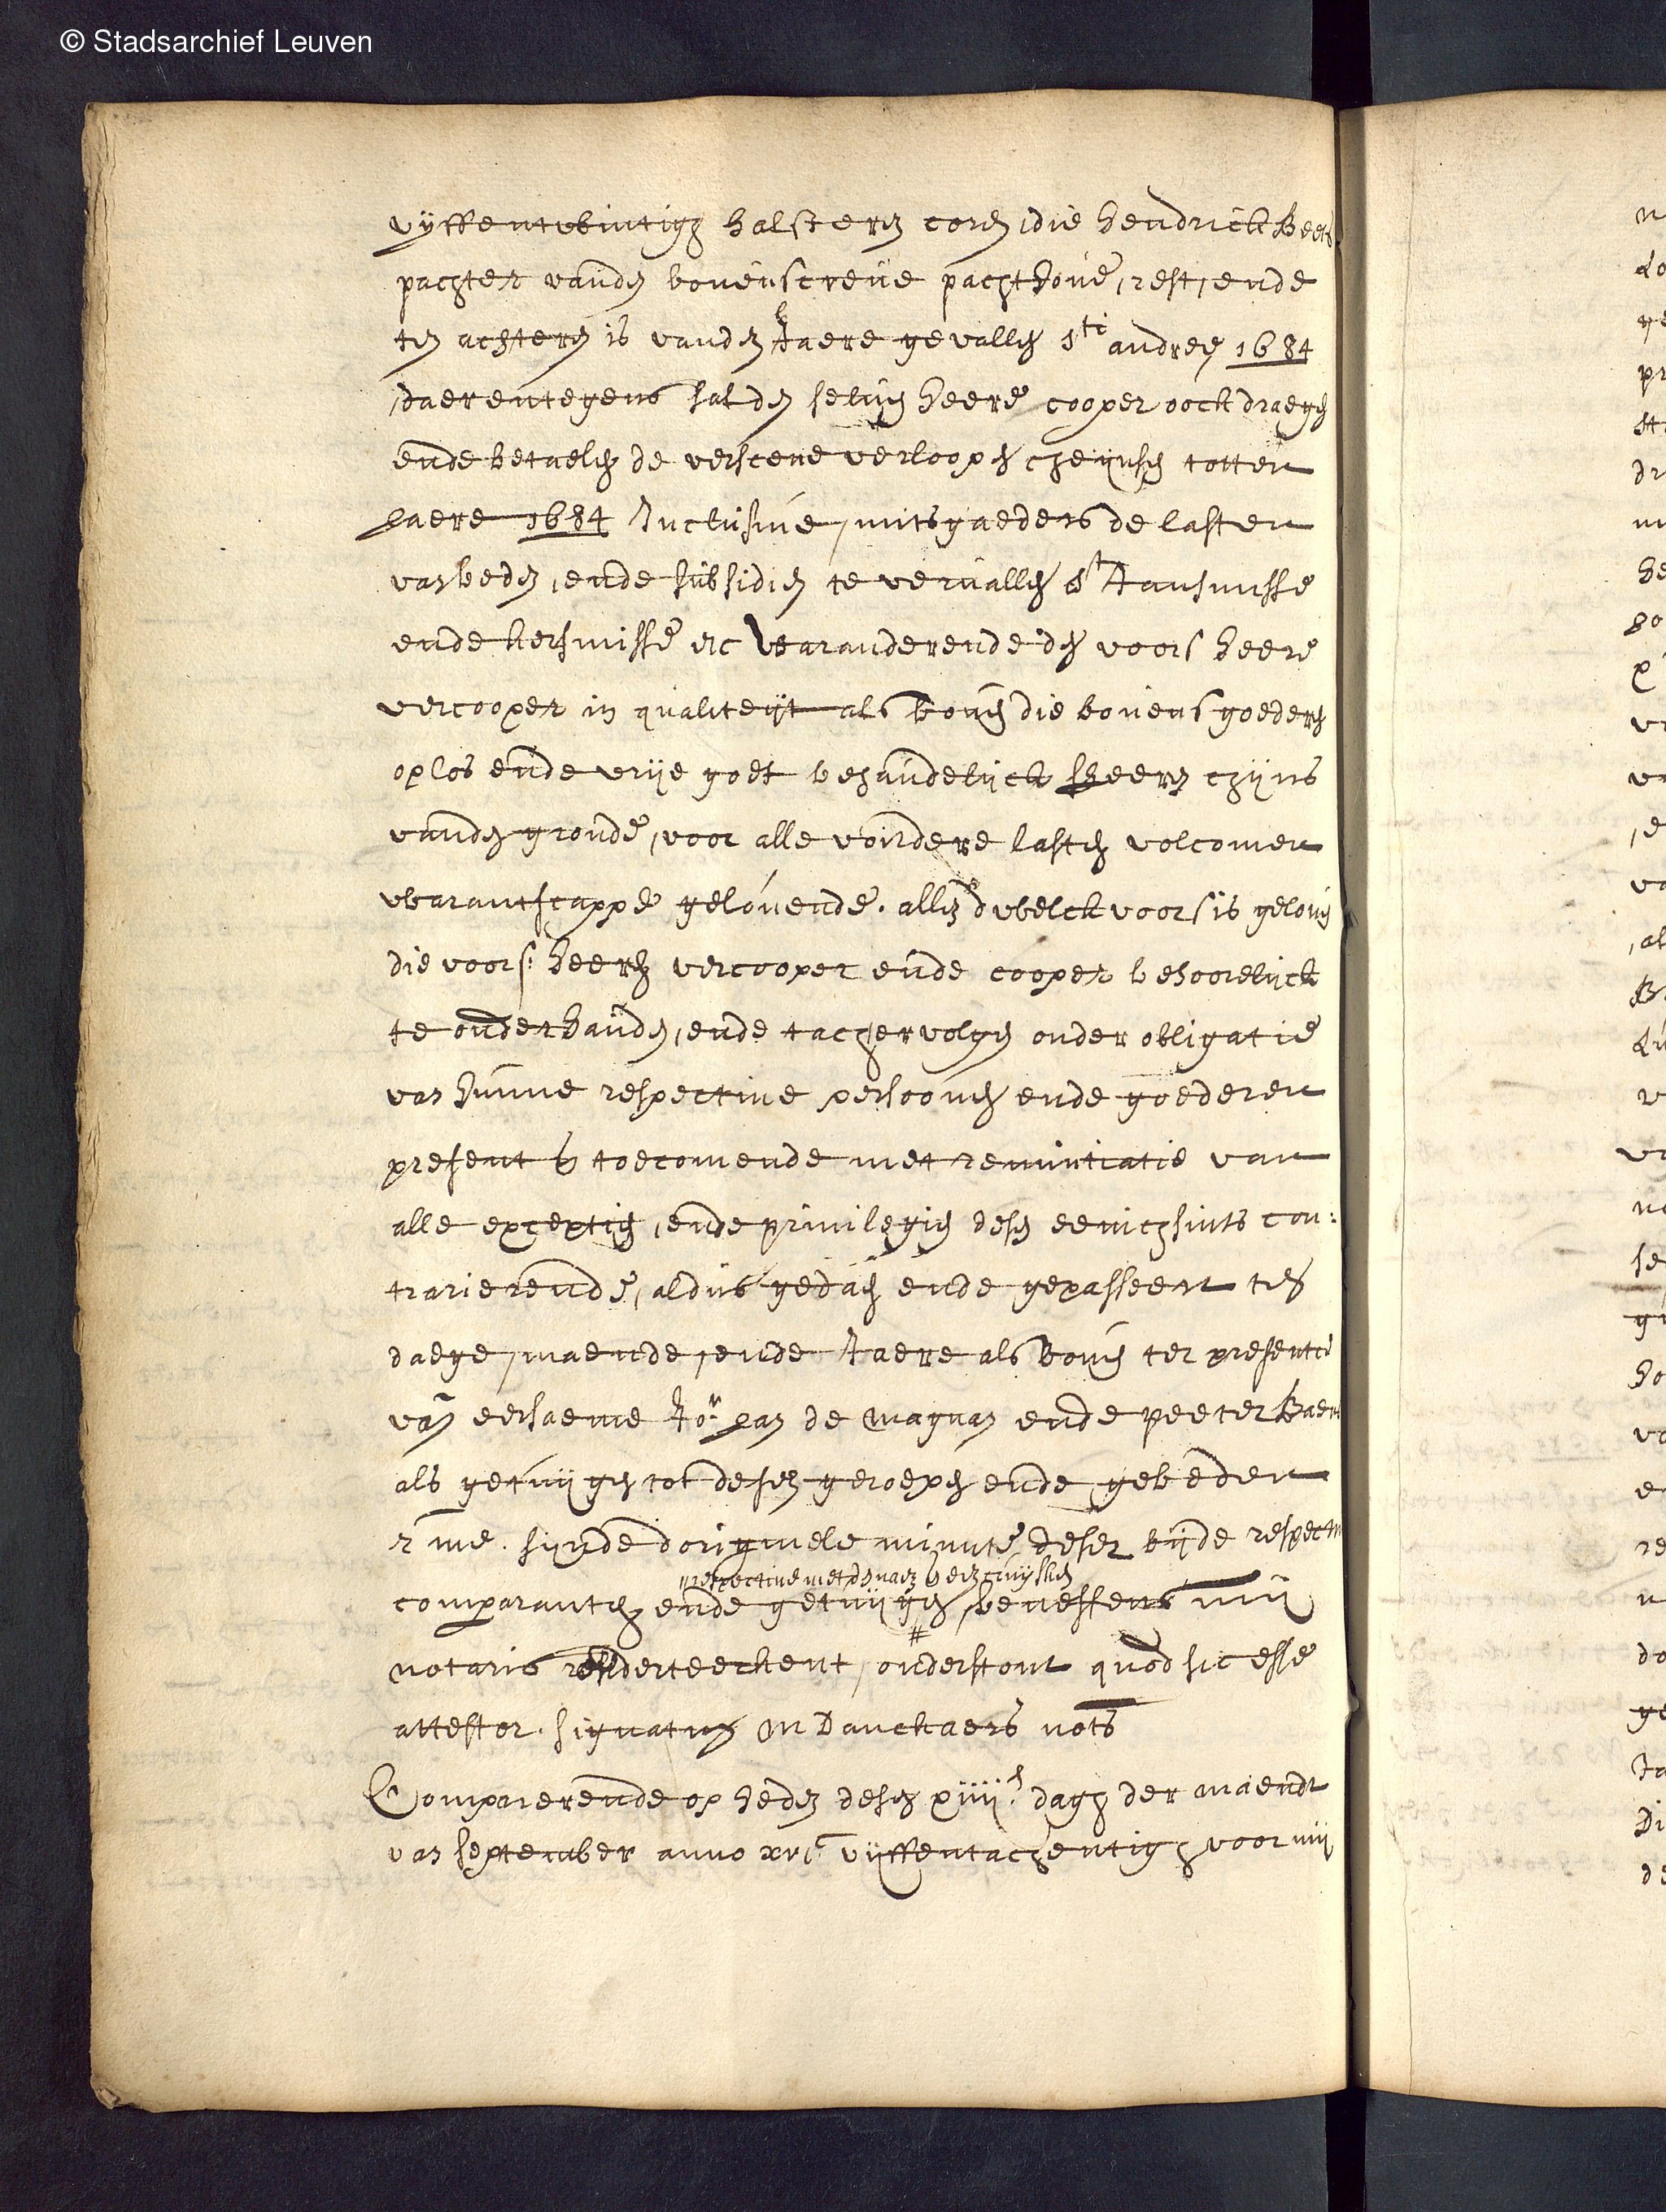 © Stadsarchief Leuven
vyffentwintigh halsteren coren, die hendrick Beets
pachter vanden bovenscreve pachthove, rest, ende
ten achteren is vanden Jaere gevallen Sti andree 1684
daerentegens sal den selven heere cooper oock draegen
ende betaelen de verscene verloopen cheynsen totten
Jaere 1684 Inclusive, mitsgaeders de lasten
van beden, ende subsidien te vervallen St Jansmisse
ende kersmisse etc Waranderende den voors heere
vercooper in qualiteijt als boven die bovens goederen
op los ende vrije goet behandelijck sheeren chijns
vanden gronde, voor alle voirdere lasten volcomen
warantscappe gelovende. allen dwelck voors is geloven
die voors: heeren vercooper ende cooper behoorelijck
te onderhauden, ende tachtervolgen onder obligatie
van hunne respective persoonen ende goederen
present & toecomende met renuntiatie van
alle exceptien, ende privilegien desen eenichsints con:
trarierende, aldus gedaen ende gepasseert ten
daege, maende, ende Jaere als boven ter presentie
van eersaeme Jor. Jan de Magnan ende peeter Baen
als getuijgen tot desen geroepen ende gebeden
sijnde dorigniele minute deser bijde respective
respective met den naem
comparanten ende getuijgen, beneffens mij
#
notaris onderteeckent, onderstont quod sic esse
attestor. signatum M Danckaers nots
Comparerende op heden desen xiiii.e dagh der maendt
van september anno xvic. vijffentachentigh voor mij